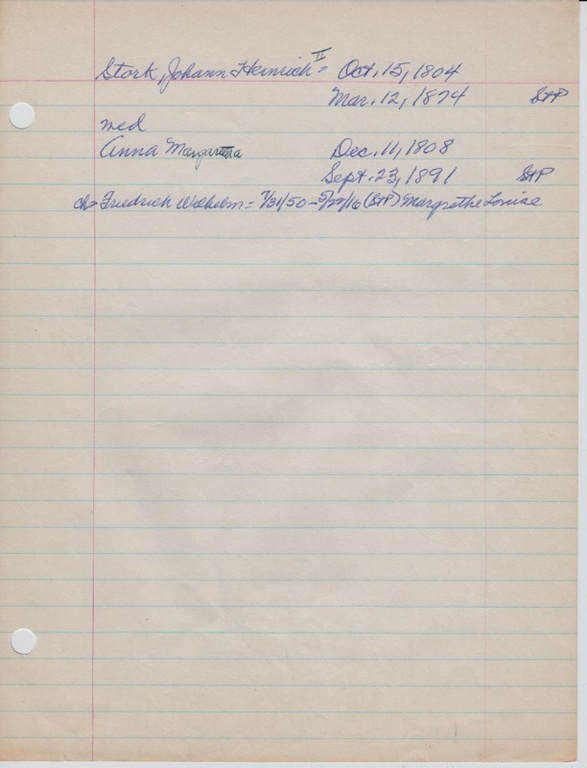 Stork, Johann Heinrich II = Oct. 15, 1804
Mar. 12, 1874 StP
med
Anna Margaretha Dec. 11, 1808
Sept. 23, 1891 StP
ch = Friedrich Wilhelm = 7/31/50 - 5/27/16 (StP) Margrethe Louise